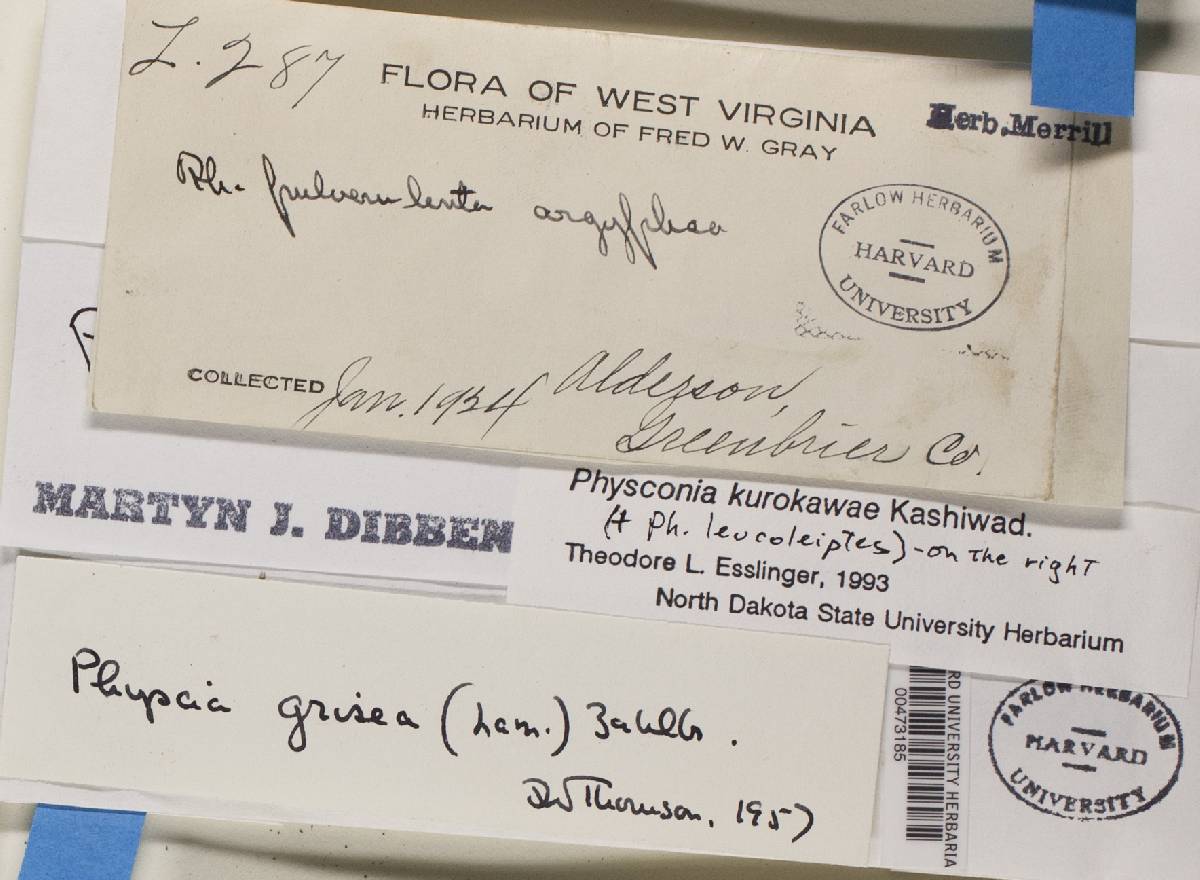 L. 287
FLORA OF WEST VIRGINIA
HERBARIUM OF FRED W. GRAY
Herb. Merrill
Ph. pulverulenta argyphaea
FARLOW HERBARIUM
HARVARD
UNIVERSITY
COLLECTED Jan. 1934 Alderson,
Greenbrier Co.
MARTYN J. DIBBEN
Physconia kurokawae Kashiwad.
(+ Ph. leucoleiptes) - on the right
Theodore L. Esslinger, 1993
North Dakota State University Herbarium
Physcia grisea (Lam.) Zahlbr.
JW Thomson, 1957
RD UNIVERSITY HERBARIA
00473185
FARLOW HERBARIUM
HARVARD
UNIVERSITY